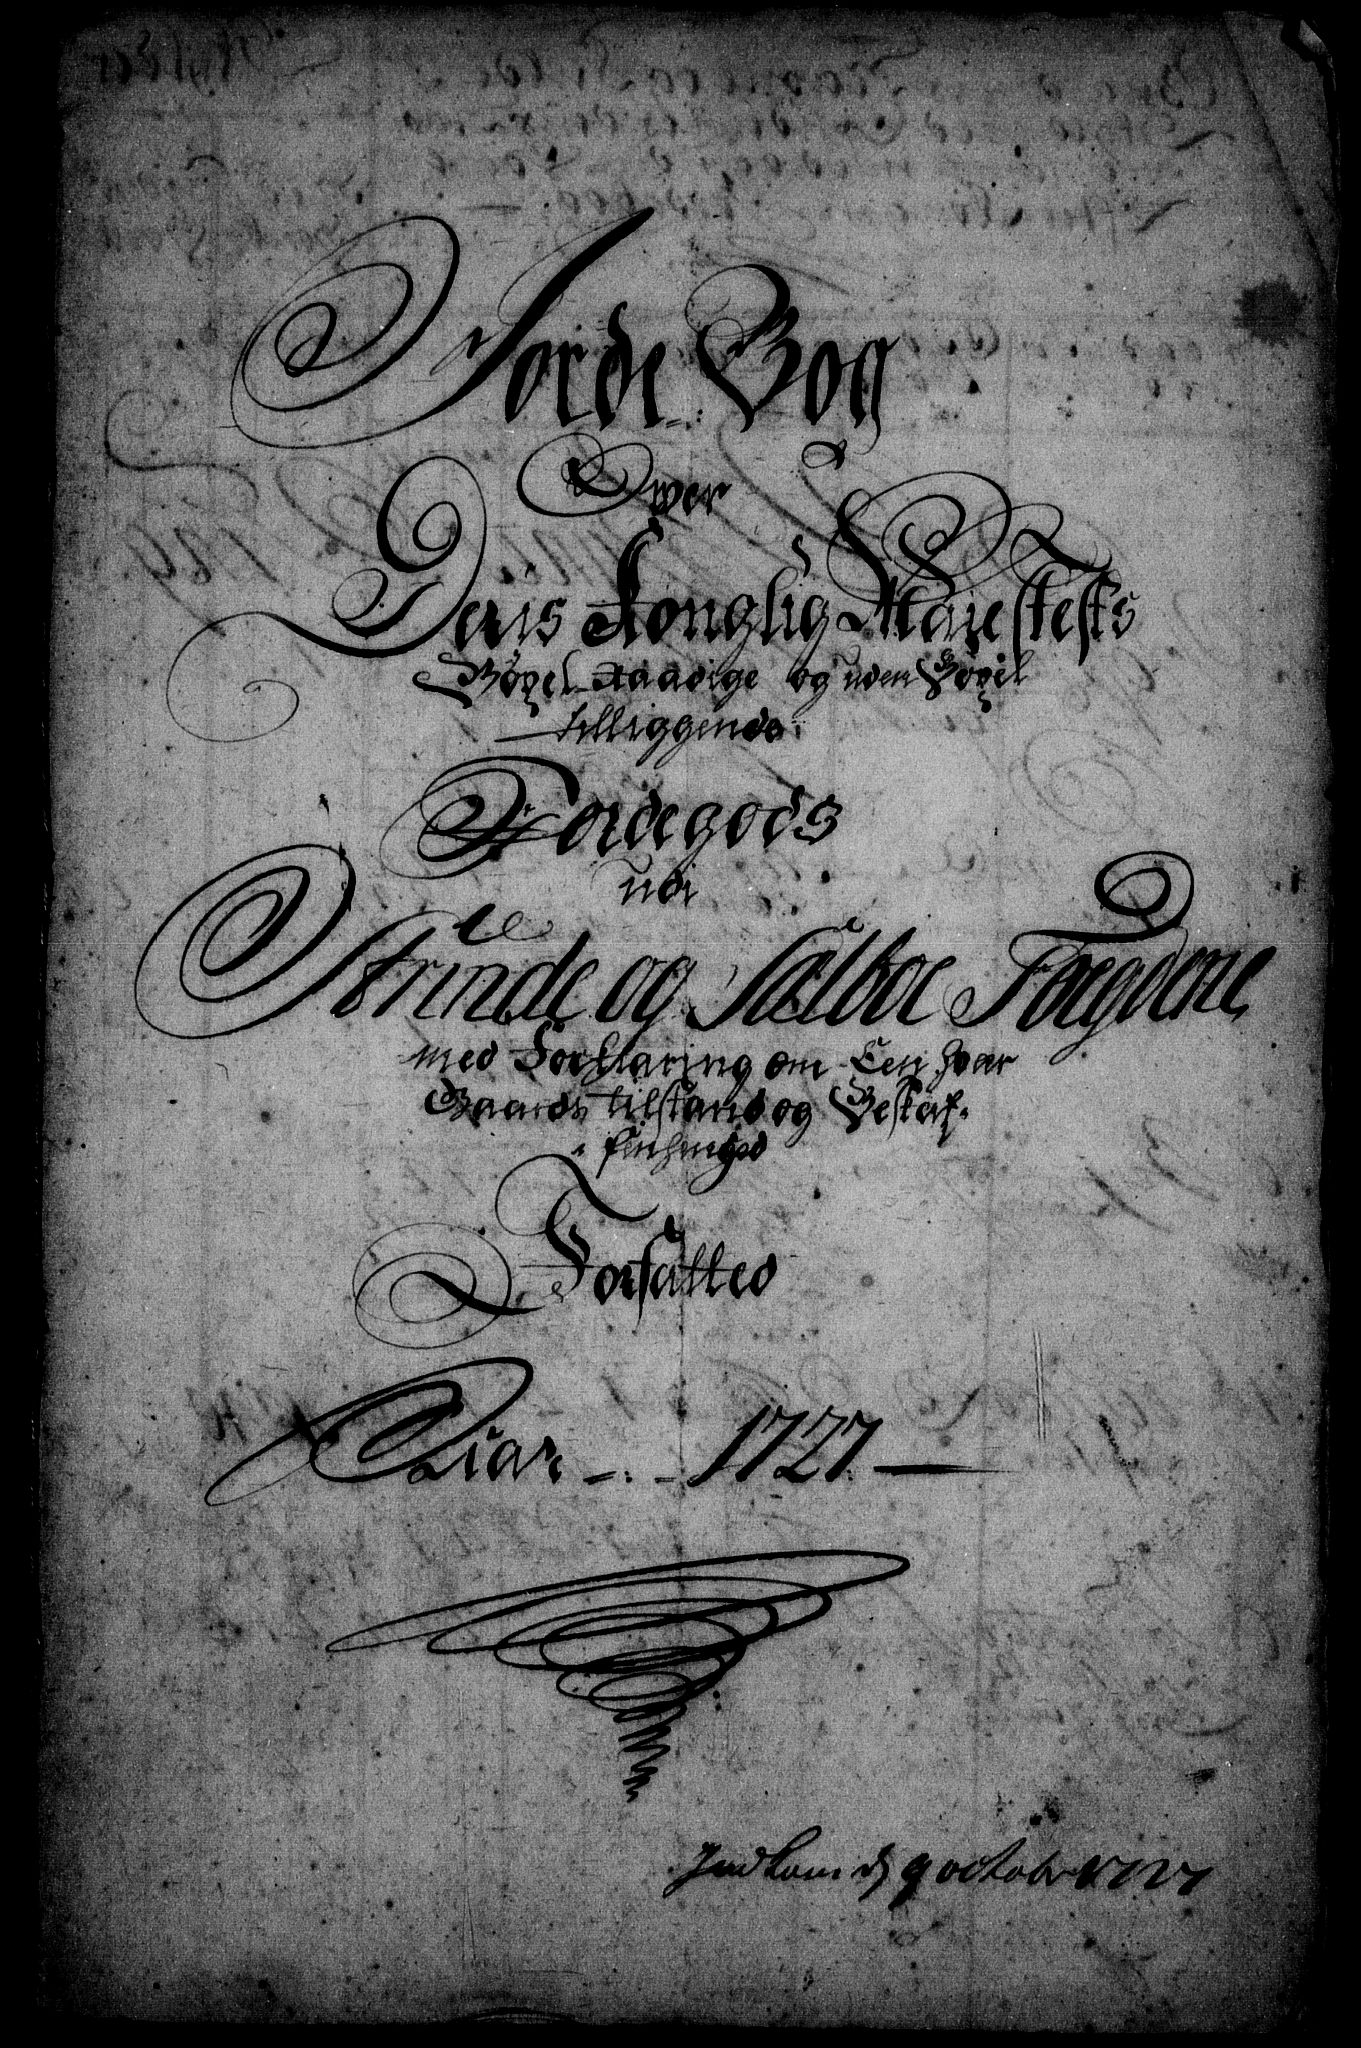 Jorde Bog
Ower
Deris Konglig Majestets
Böxel Raadige og uden Böxel
tilliggende
Jordegods
udi
Strinde og Sælboe Foegderie
med Forklaring om Een hver
Gaards tilstand og Beskaf-
fenhed
Forfatted
Aar 1727
Indkom d 9 octobr 1727